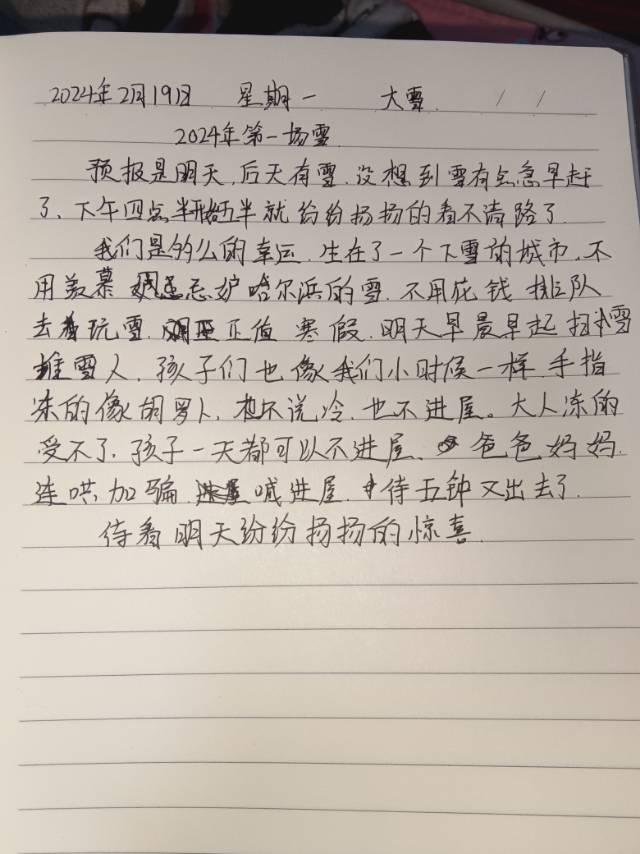 2024年2月19日 星期一 大雪
2024年第一场雪
预报是明天,后天有雪.没想到雪有点急早赶
了、下午四点半开始五半就纷纷扬扬的看不清路了
我们是多么的幸运.生在了一个下雪的城市.不
用羡慕 忌妒哈尔滨的雪.不用花钱 排队
去 玩雪. 正值 寒假.明天早晨早起 扫雪
堆雪人.孩子们也像我们小时候一样.手指
冻的像胡萝卜.也不说冷.也不进屋。大人冻的
受不了.孩子一天都可以不进屋. 爸爸妈妈.
连哄加骗 喊进屋. 待五钟又出去了.
待看明天纷纷扬扬的惊喜.